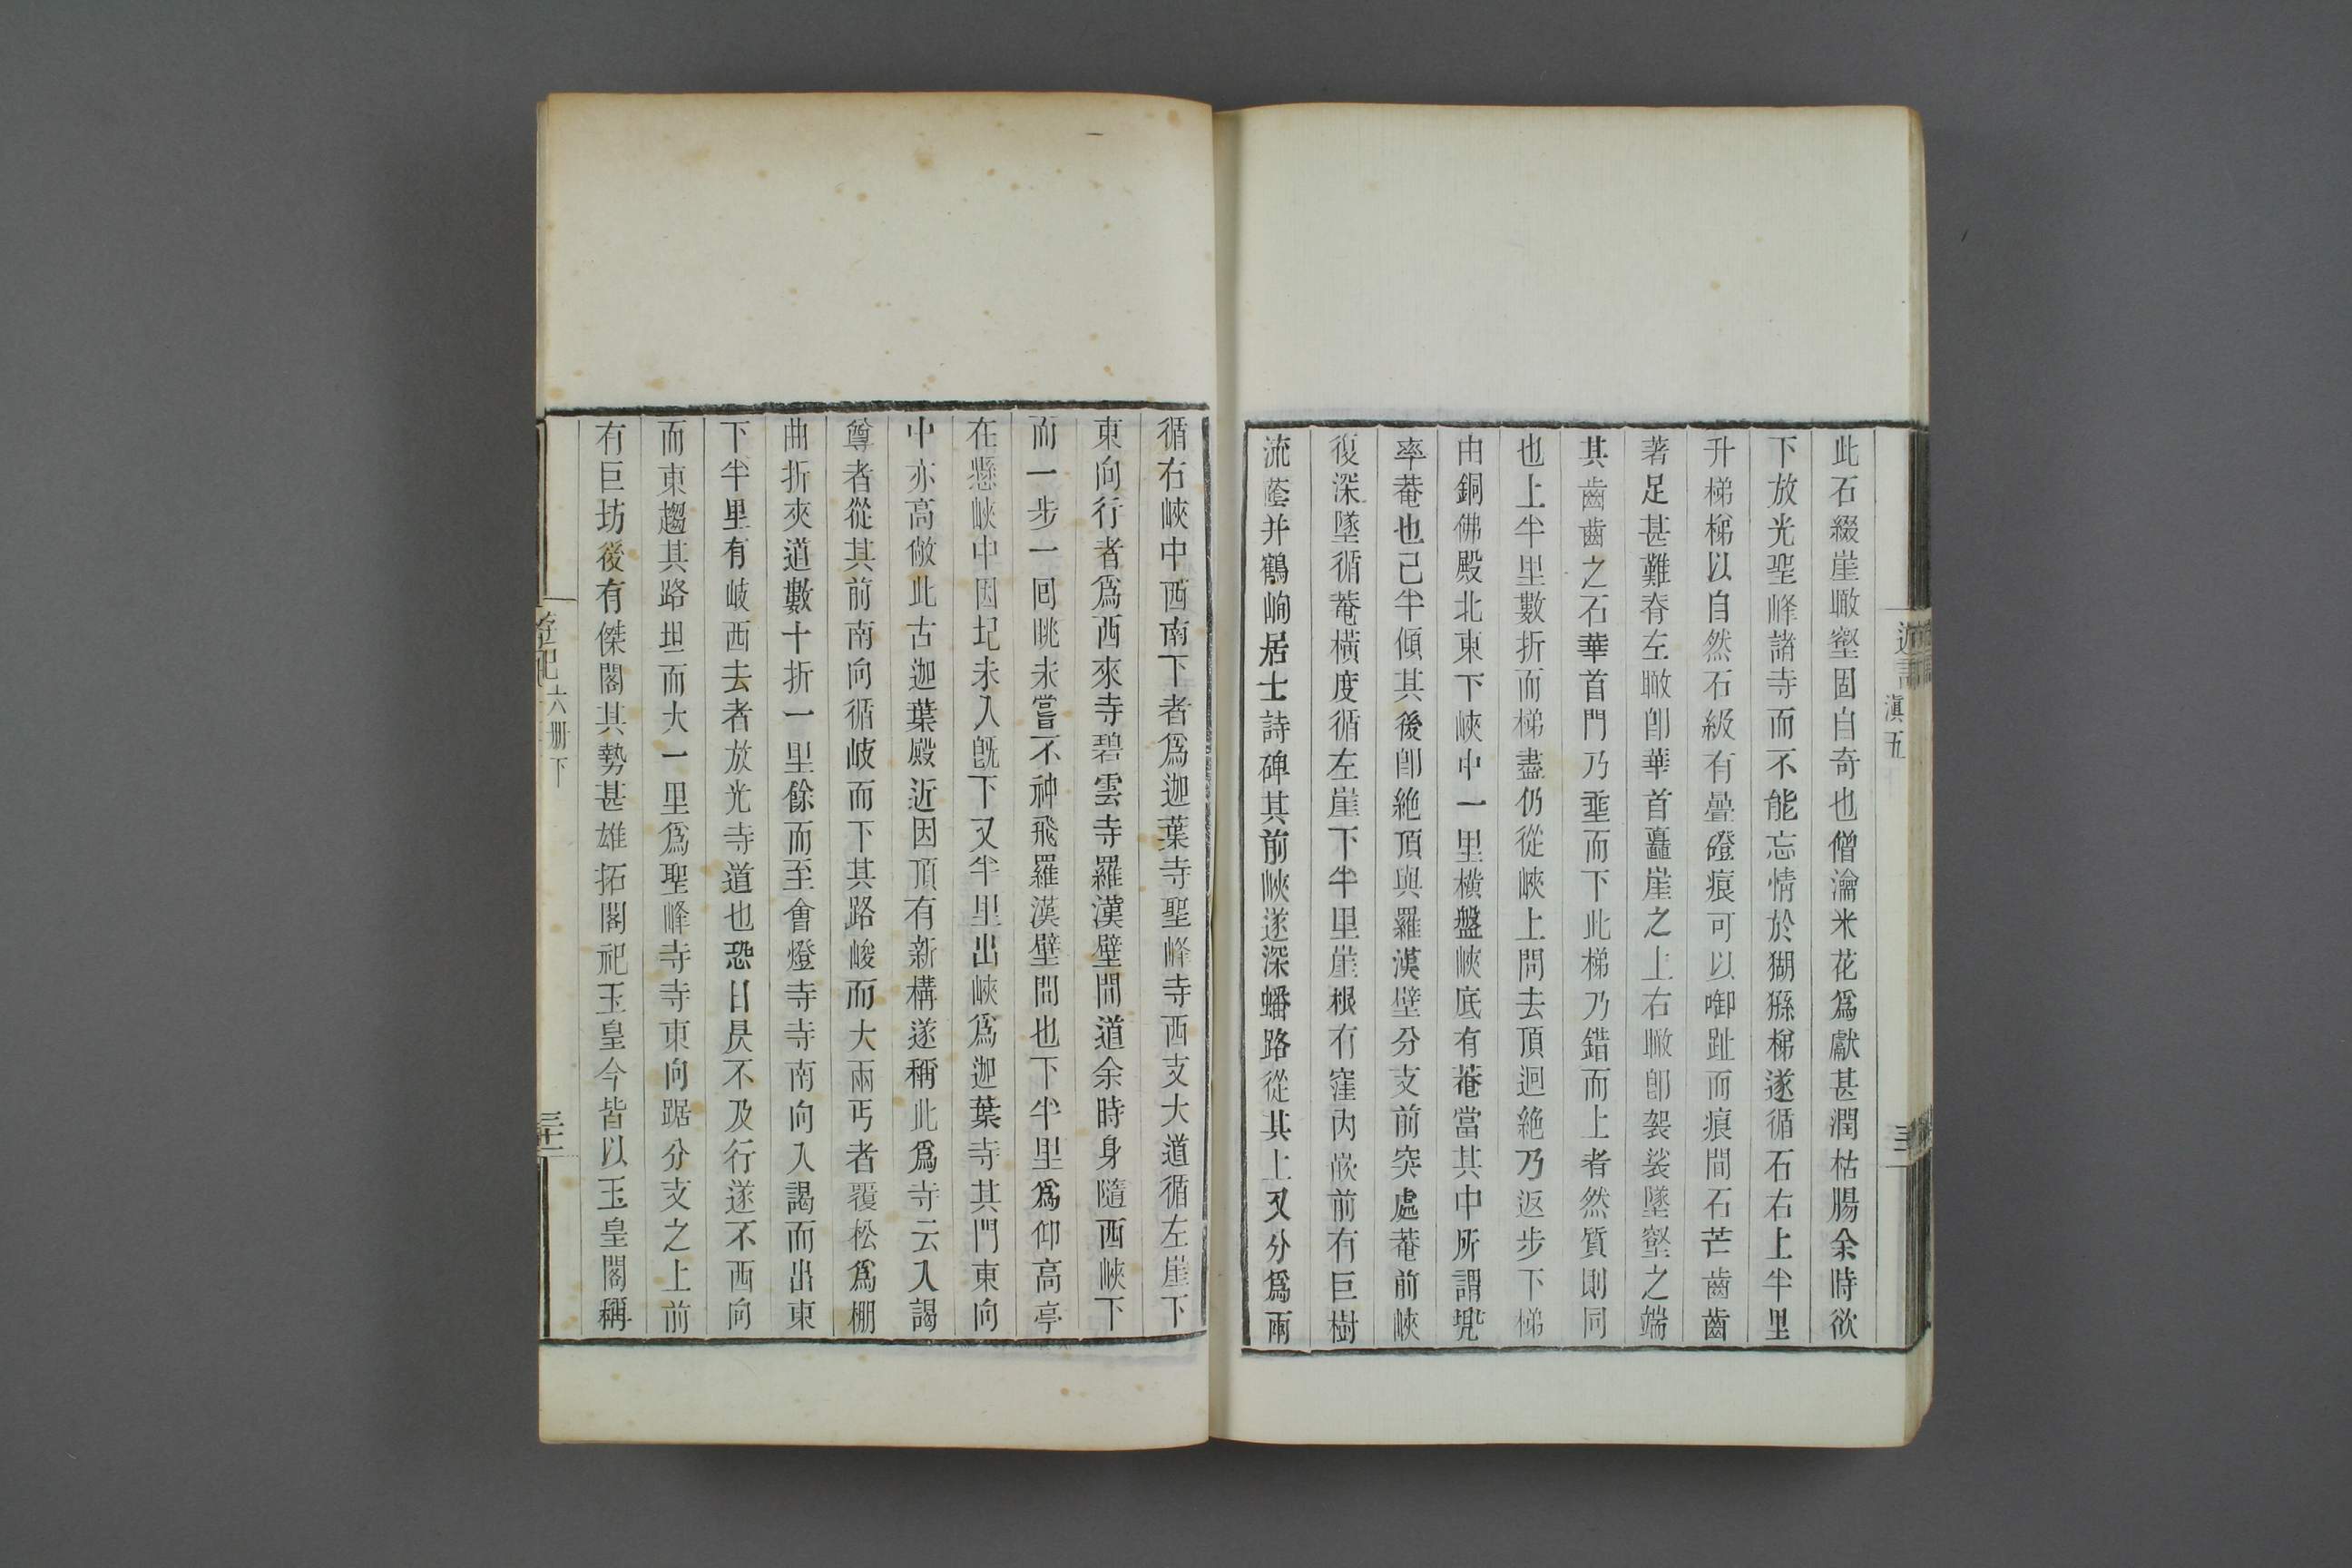 此石綴崖瞰壑固自奇也僧瀹米花爲獻甚潤枯腸余時欲
下放光聖峰諸寺而不能忘情於猢猻梯遂循石右上半里
升梯梯以自然石級有疊磴痕可以啣趾而痕間石芒齒齒
著足甚難脊左瞰卽華首矗崖之上右瞰卽袈裟墜壑之端
其齒齒之石華首門乃垂而下此梯乃錯而上者然質則同
也上半里數折而梯盡仍從峽上問去頂迥絶乃返步下梯
由銅佛殿北東下峽中一里橫盤峽底有菴當其中所謂兜
率菴也已半傾其後卽絶頂與羅漢壁分支前突處菴前峽
復深墜循菴橫度循左崖下半里崖根有窪內嵌前有巨樹
流蔭并鶴峋居士詩碑其前峽遂深蟠路從其上又分爲兩
滇五
循右峽中西南下者爲迦葉寺聖峰寺西支大道循左崖下
東向行者爲西來寺碧雲寺羅漢壁間道余時身隨西峽下
而一步一回眺未嘗不神飛羅漢壁間也下半里爲仰高亭
在懸峽中因圮未入旣下又半里出峽爲迦葉寺其門東向
中亦高敞此古迦葉殿近因頂有新構遂稱此爲寺云入謁
尊者從其前南向循岐而下其路峻而大兩丐者覆松爲棚
曲折夾道數十折一里餘而至會燈寺寺南向入謁而出東
下半里有岐西去者放光寺道也恐日昃不及行遂不西向
而東趨其路坦而大一里爲聖峰寺寺東向踞分支之上前
有巨坊後有傑閣其勢甚雄拓閣祀玉皇今皆以玉皇閣稱
六册下